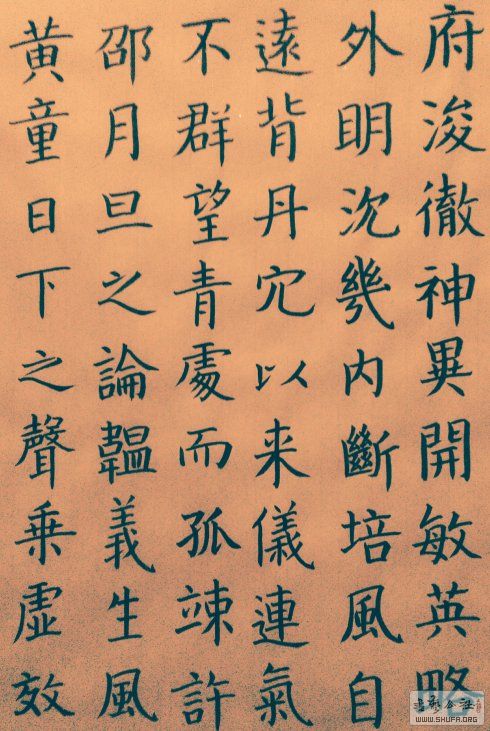 府浚徹神異開敏英略
外明沉幾內斷培風自
遠背丹穴以来儀連氣
不群望青處而孤竦許
邵月旦之論韞義生風
黃童日下之聲乗虛效
WWW.SHUFA.ORG